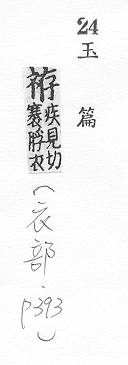 24
玉篇
袸
疾見切
衣
(衣部.p393)